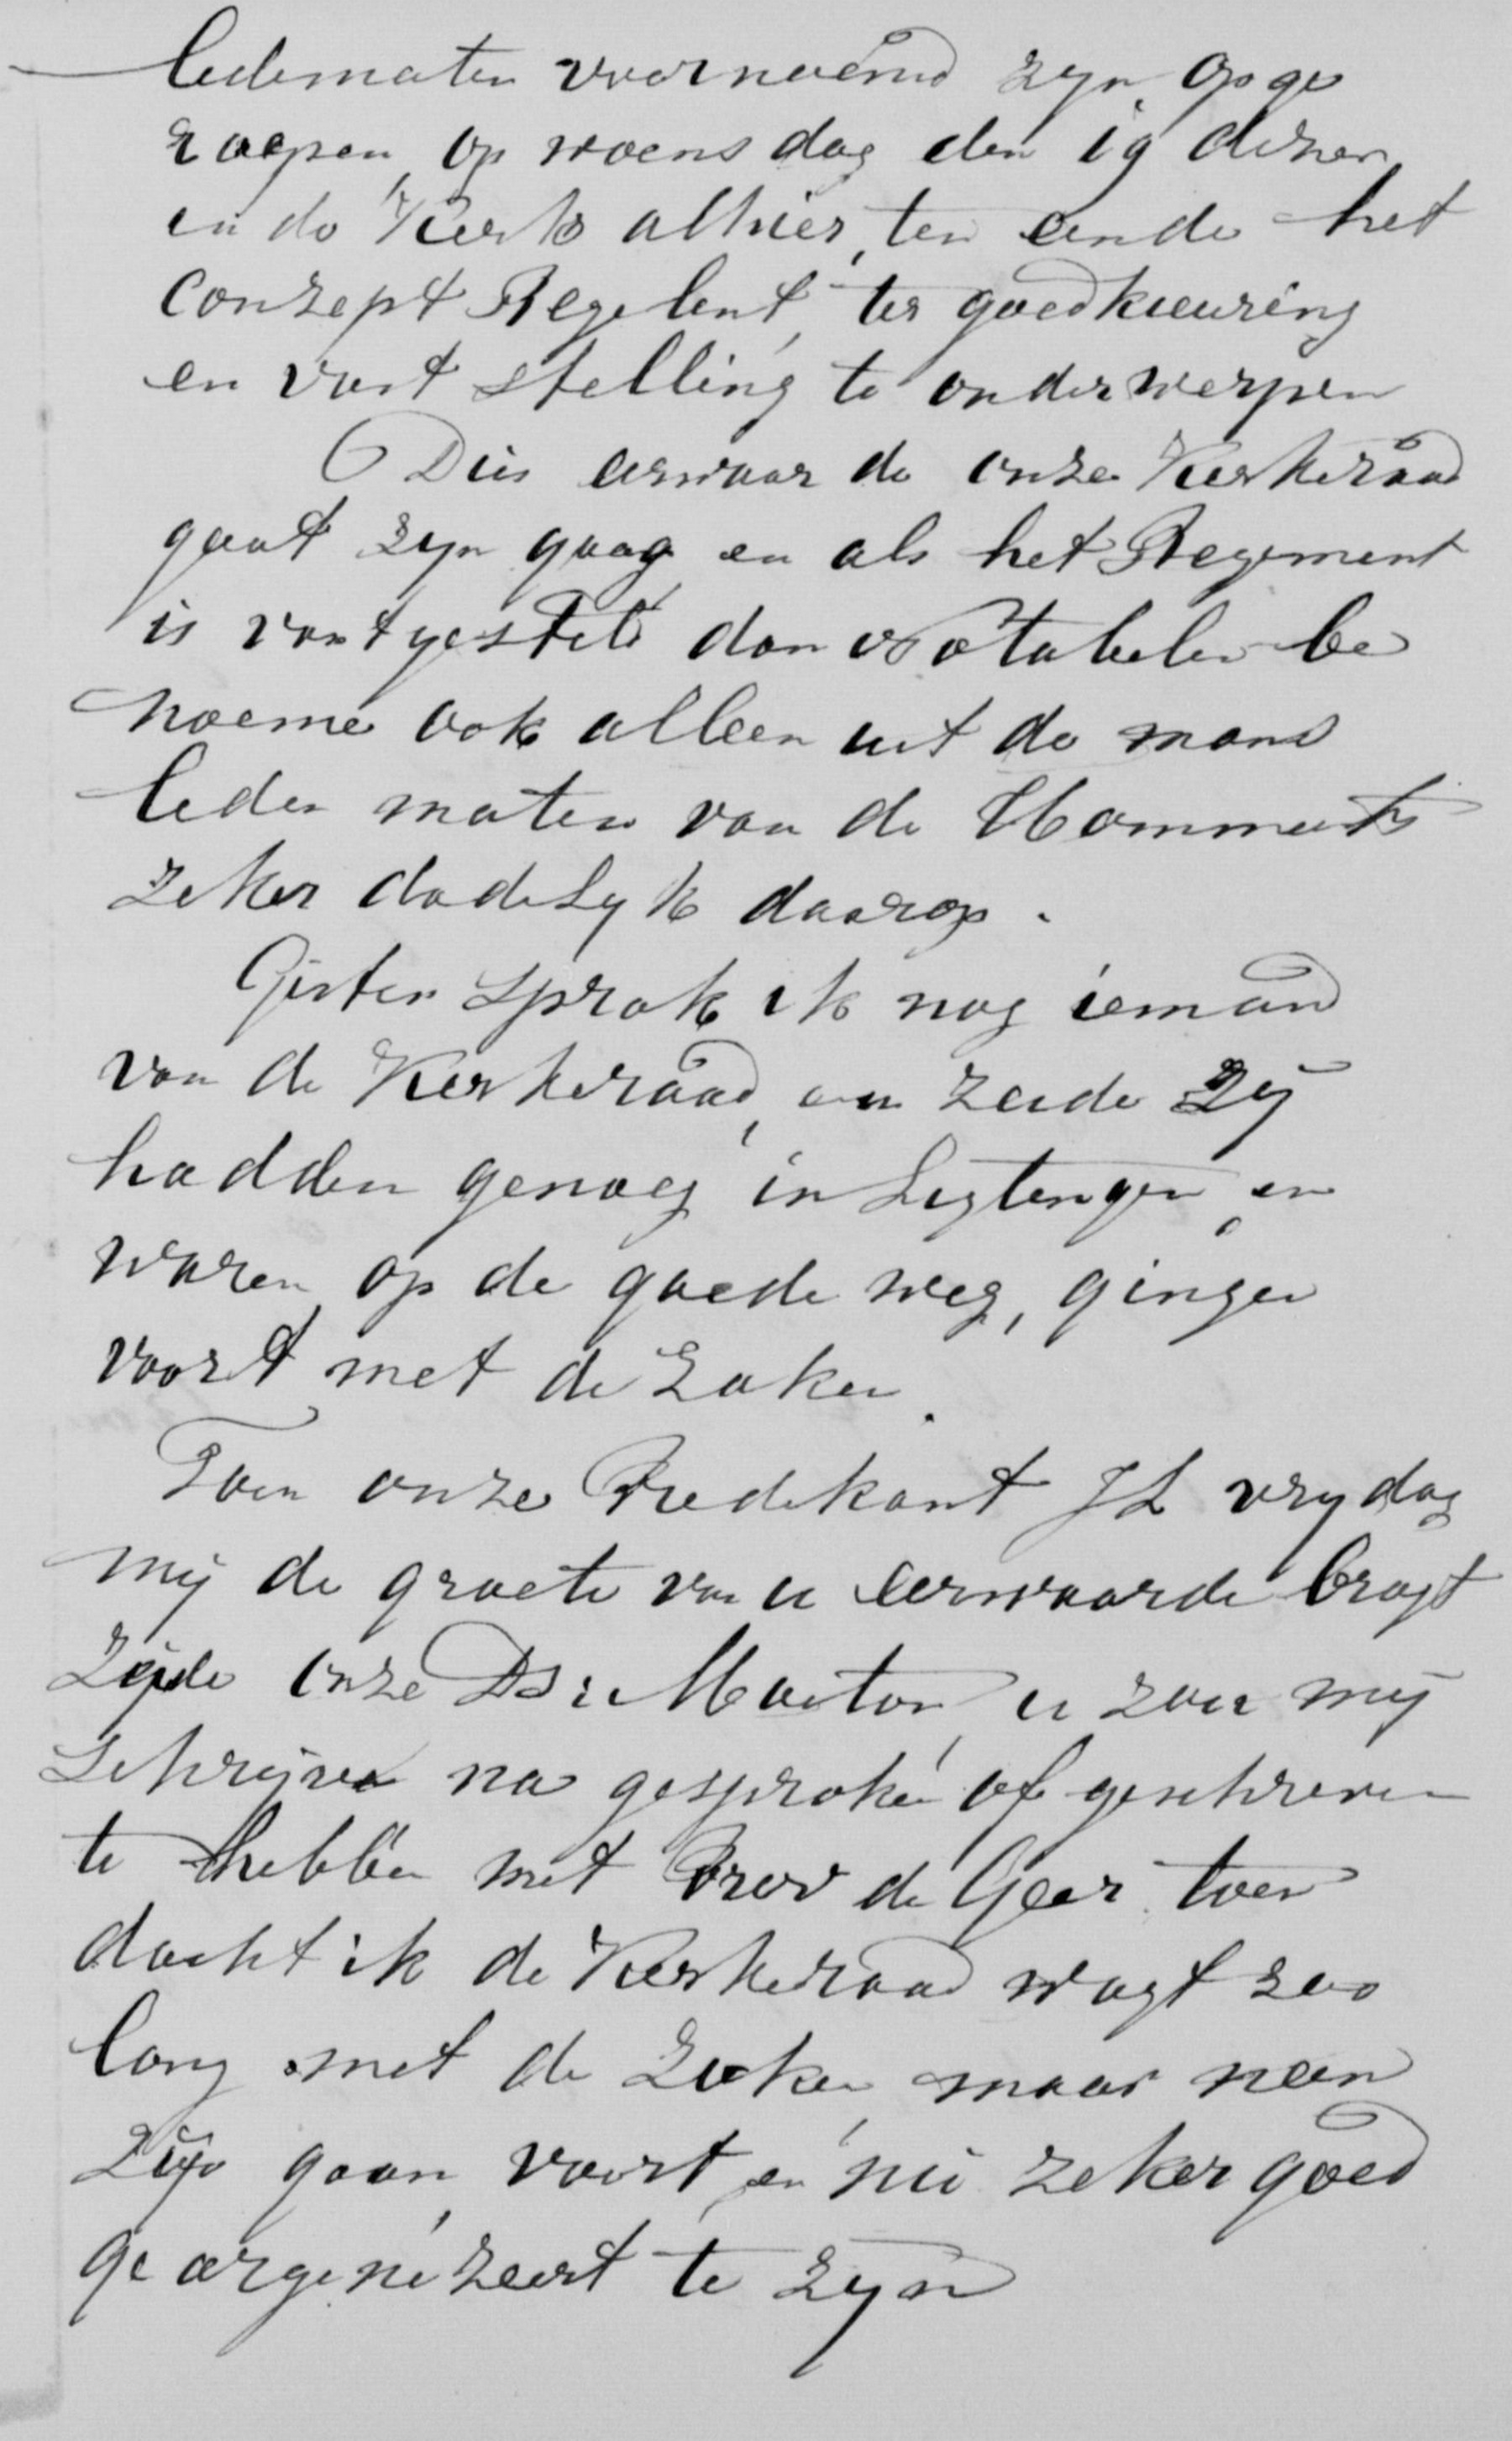 ledematen voornoemd zyn opge
roepen, op woensdag den 19 dezer
in de Kerk alhier, ten einde het
Conzept Regelent, ter goedkeuring
en vast stelling te onderwerpen
Dus eerwaar de onze Kerkeraad
gaat zyn gang en als het Regement
is vastgesteld dan Notabelen be
noeme ook alleen uit de mans
leden maten van de
zeker dadelyk daarop.
Gister sprak ik nog iemand
van de Kerkeraad, en zeide Zij
hadden genoeg in Ligtengen en
waren op de goede weg, gingen
voort met de Zaken.
Toen onze Predikant JL vrydag
mij de groete van u eerwaarde bragt
Zeide onze Ds: u zou mij
Schrijven na gesproke of geschreven
te hebben met Prov de Geer toen
dacht ik de Kerkeraad wagt zoo
lang met de Zaken maar neen
Zij gaan, voort, en nu zeker goed
georgenizeert te zyn